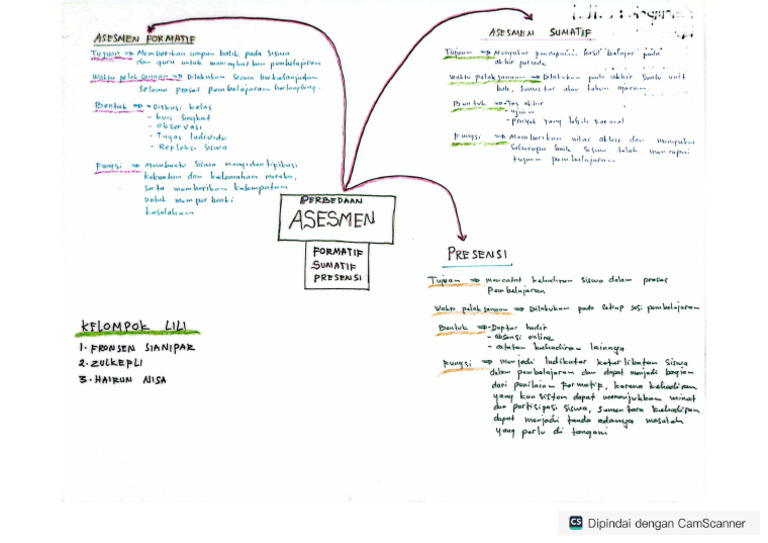 ASESMEN FORMATIF
Tujuan => Memberikan umpan balik pada siswa
dan guru untuk meningkatkan pembelajaran
Waktu pelaksanaan => Dilakukan secara berkelanjutan
selama proses pembelajaran berlangsung.
Bentuk => - Diskusi kelas
- kuis singkat
- observasi
- Tugas Individu
- Refleksi siswa
Fungsi => Membantu siswa mengidentifikasi
kekuatan dan kelemahan mereka,
serta memberikan kesempatan
untuk memperbaiki
kesalahan
ASESMEN SUMATIF
Tujuan => Mengukur pencapaian hasil belajar pada
akhir periode
Waktu pelaksanaan => Dilakukan pada akhir suatu unit
bab, semester atau tahun ajaran.
Bentuk => - Tes akhir
- ujian
- Proyek yang lebih formal
Fungsi => Memberikan nilai akhir dan mengukur
seberapa baik siswa telah mencapai
tujuan pembelajaran
PERBEDAAN
ASESMEN
FORMATIF
SUMATIF
PRESENSI
PRESENSI
Tujuan => mencatat kehadiran siswa dalam proses
pembelajaran
Waktu pelaksanaan => Dilakukan pada setiap sesi pembelajaran
Bentuk => - Daptar hadir
- absensi online
- catatan kehadiran lainnya
Fungsi => Menjadi Indikator keterlibatan siswa
dalam pembelajaran dan dapat menjadi bagian
dari penilaian formatif, karena kehadiran
yang konsisten dapat menunjukkan minat
dan partisipasi siswa, sementara kehadiran
dapat menjadi tanda adanya masalah
yang perlu di tangani
KELOMPOK LILI
1. FRONSEN SIANIPAR
2. ZULKEFLI
3. HAIRUN NISA
CS Dipindai dengan CamScanner